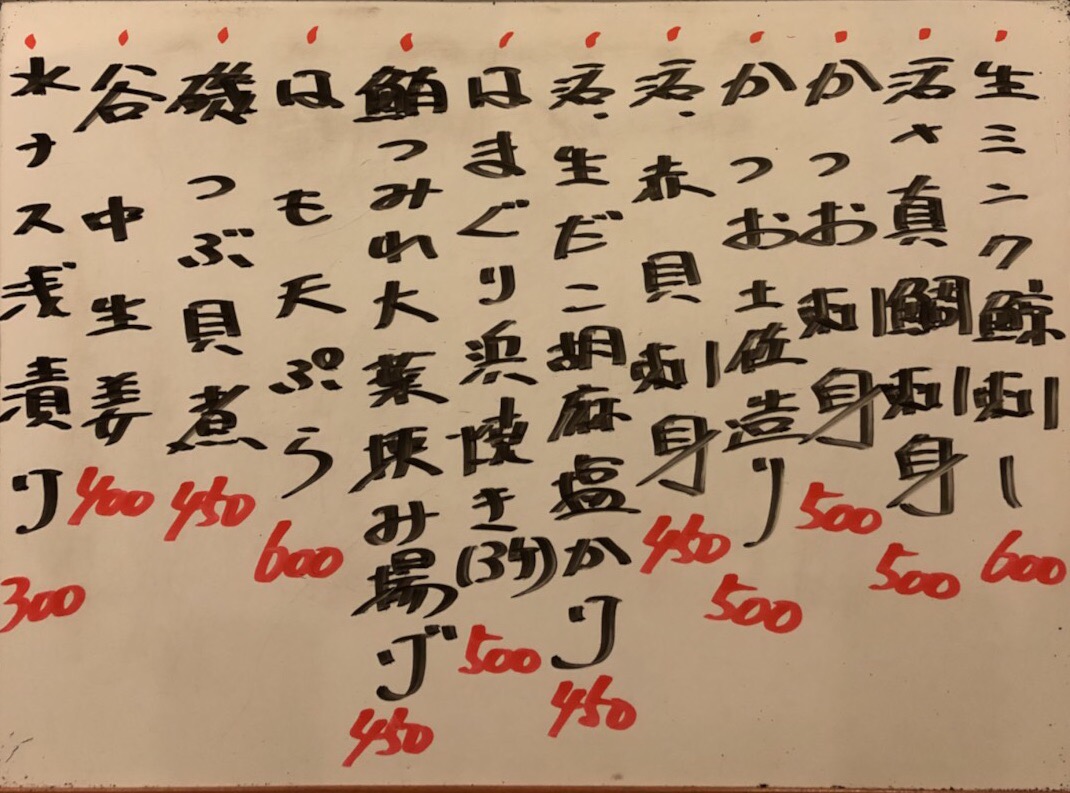 生ミンク鯨刺し 600
活〆真鯛刺身 500
かつお刺身 500
かつお土佐造り 500
活、赤貝刺身 450
活、生だこ胡麻塩かけ 450
はまぐり浜焼き(3ケ) 500
鮪つみれ大葉挟み揚げ 450
はも天ぷら 600
磯つぶ貝煮 450
谷中生姜 400
水ナス浅漬け 300